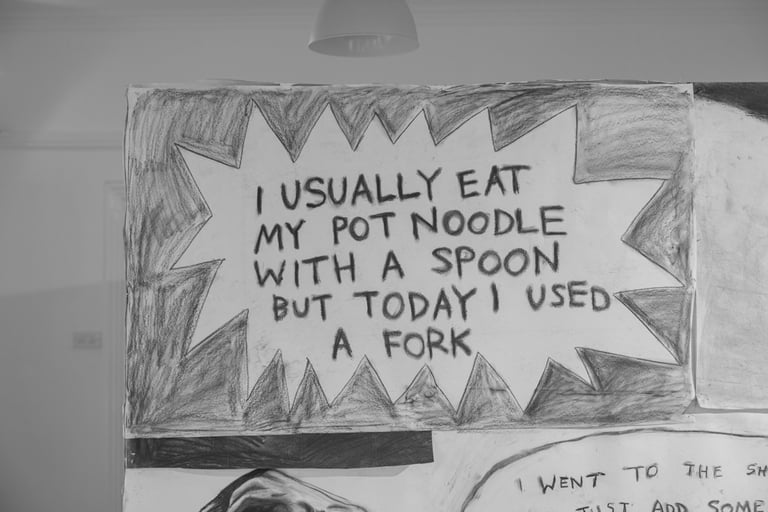 I USUALLY EAT
MY POT NOODLE
WITH A SPOON
BUT TODAY I USED
A FORK
I WENT TO THE
JUST ADD SOME